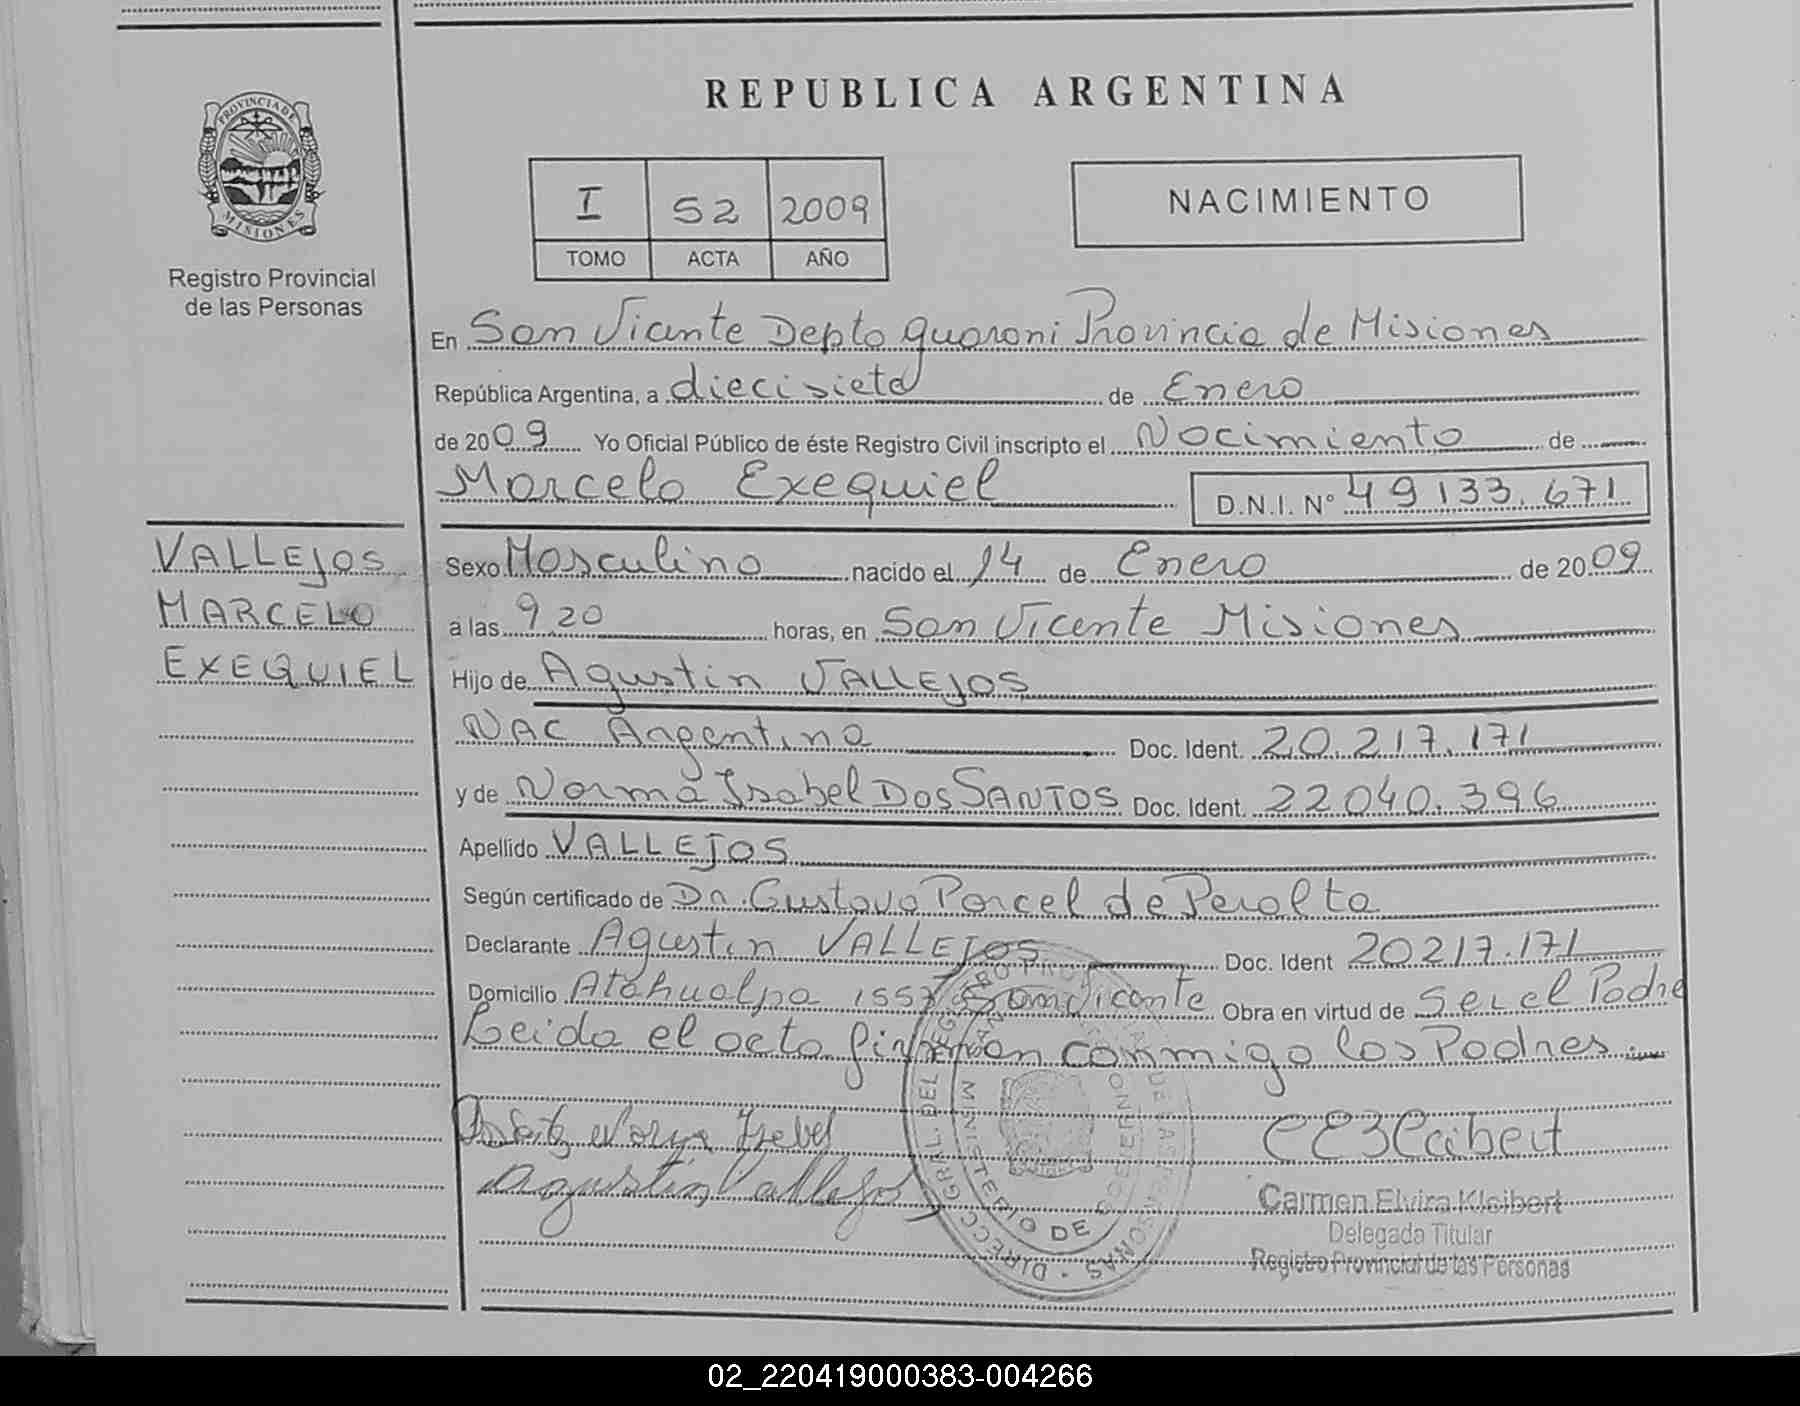 REPUBLICA ARGENTINA
PROVINCIA DE
MISIONES
Registro Provincial
de las Personas
I 52 2009
TOMO ACTA AÑO
NACIMIENTO
En San Vicente Depto Guarani Provincia de Misiones
República Argentina, a diecisiete de Enero
de 2009 Yo Oficial Público de éste Registro Civil inscripto el Nacimiento de
Marcelo Exequiel D.N.I. N° 49133.671
VALLEJOS
MARCELO
EXEQUIEL
Sexo Masculino nacido el 14 de Enero de 2009
a las 9,20 horas, en San Vicente Misiones
Hijo de Agustin VALLEJOS
NAC Argentina Doc. Ident. 20.217.171
y de Norma Isabel DOS SANTOS Doc. Ident. 22040.396
Apellido VALLEJOS
Según certificado de Dr. Gustavo Porcel de Peralta
Declarante Agustin VALLEJOS Doc. Ident 20217.171
Domicilio Atahualpa 1557 San Vicente Obra en virtud de Ser el Padre
Leida el acta firman conmigo los Padres
Norma Isabel
Agustin Vallejos
DIRECC. GRAL. DEL REGISTRO PROVINCIAL DE LAS PERSONAS
MINISTERIO DE GOBIERNO
Carmen Elvira Kleibert
Delegada Titular
Registro Provincial de las Personas
02_220419000383-004266